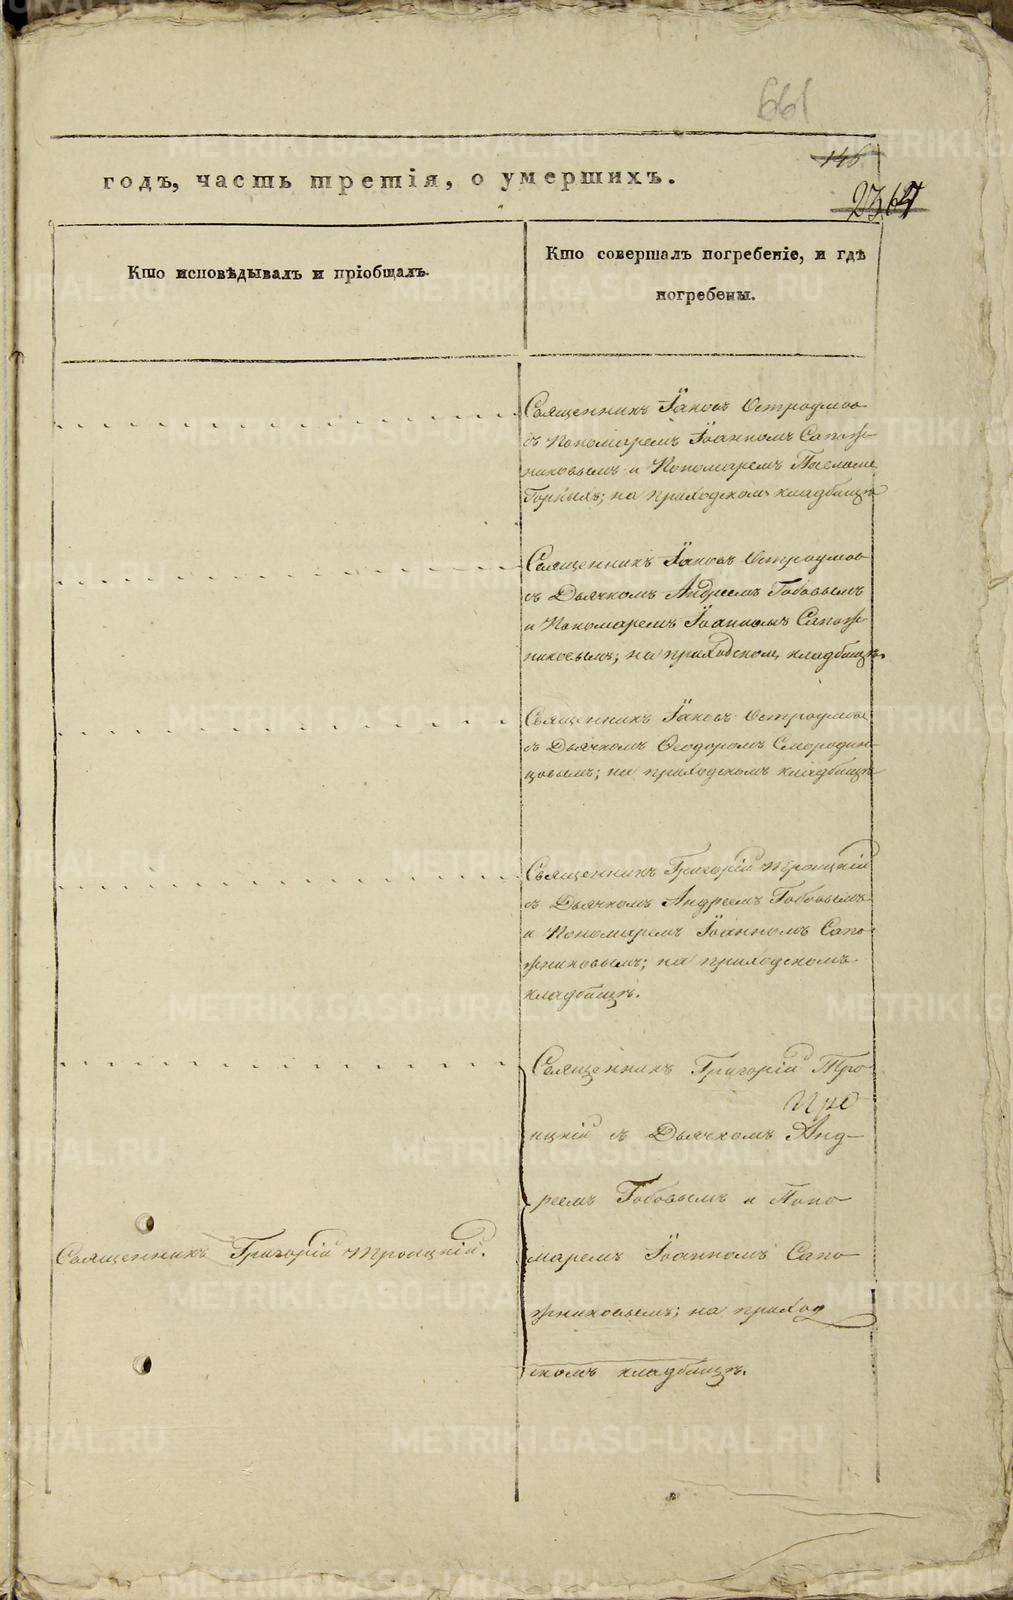 661
146
годъ, часть третія, о умершихъ.
2364
Кто исповѣдывалъ и пріобщалъ.
Кто совершалъ погребеніе, и гдѣ
погребены.
Священникъ Іаковъ Остроумов
съ Пономаремъ Іоанномъ Сапож-
никовымъ и Пономаремъ Павломъ
Горныхъ; на приходскомъ кладбищѣ
Священникъ Іаковъ Остроумов
съ Дьячкомъ Андреемъ Бобовымъ
и Пономаремъ Іоанномъ Сапож-
никовымъ; на приходскомъ кладбищѣ.
Священникъ Іаковъ Остроумовъ
съ Дьячкомъ Ѳеодоромъ Смородин-
цовымъ; на приходскомъ кладбищѣ
Священникъ Григорій Троицкій
съ Дьячкомъ Андреемъ Бобовымъ
и Пономаремъ Іоанномъ Сапо-
жниковымъ; на приходскомъ
кладбищѣ.
Священникъ Григорій Тро
ицкій съ Дьячкомъ Анд-
реемъ Бобовымъ и Поно
Священникъ Григорій Троицкій.
маремъ Іоанномъ Сапо
жниковымъ; на приход
скомъ кладбищѣ.
METRIKI.GASO-URAL.RU